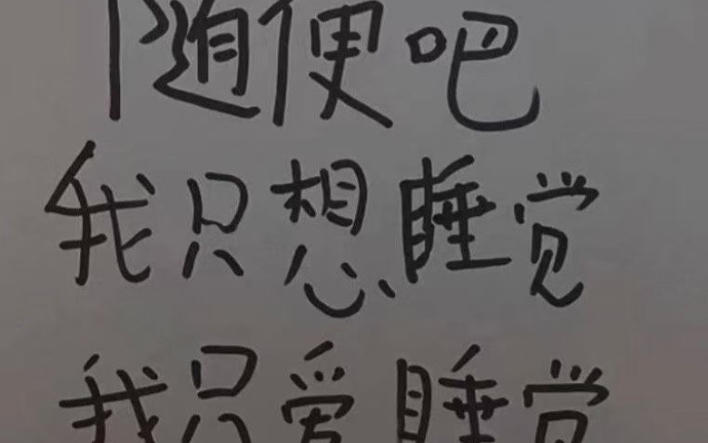 随便吧
我只想睡觉
我只爱睡觉